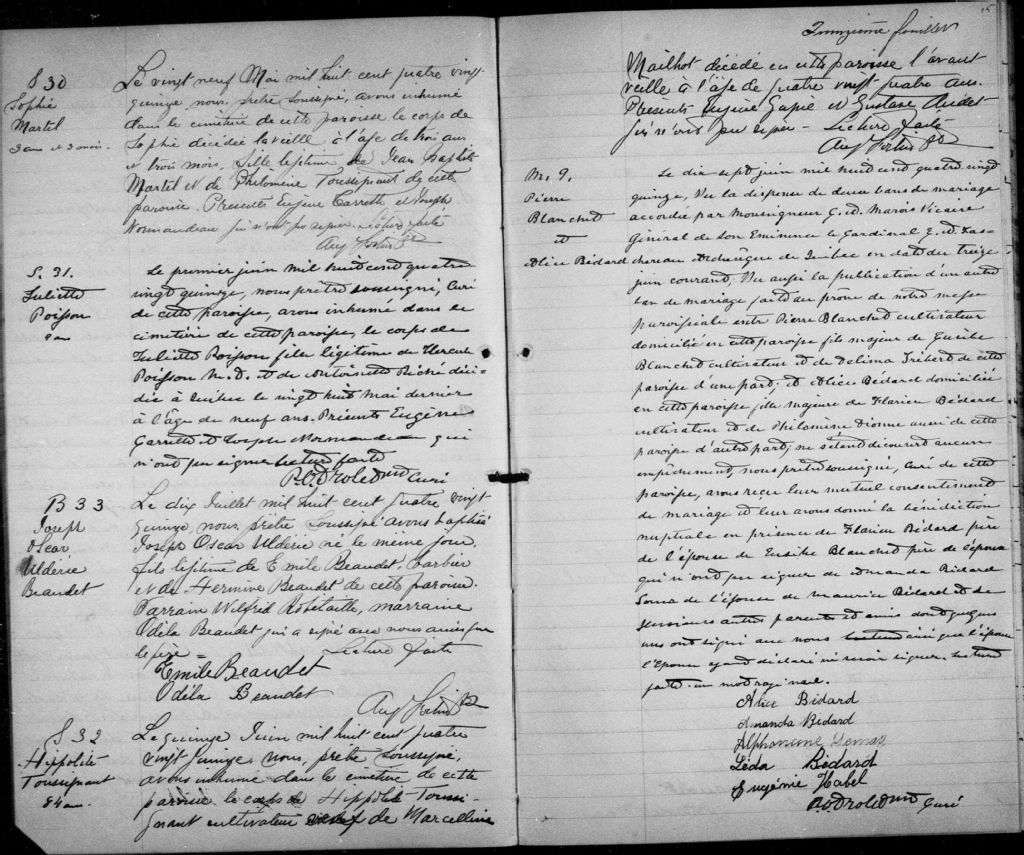 S 30
Sophie
Martel
3 ans et 3 mois.
Le vingt neuf Mai mil huit cent quatre vingt
quinze nous, prêtre soussigné, avons inhumé
dans le cimetière de cette paroisse le corps de
Sophie décédée la veille à l'âge de trois ans
et trois mois, fille légitime de Jean Baptiste
Martel et de Philomène Toussignant de cette
paroisse. Présents Eugène Garrette et Joseph
Normandeau qui n'ont pu signer. Lecture faite
Aug Fortin Ptr
S. 31.
Juliette
Poisson
9 ans
Le premier juin mil huit cent quatre
vingt quinze, nous prêtre soussigné, Curé
de cette paroisse, avons inhumé dans le
cimetière de cette paroisse, le corps de
Juliette Poisson fille légitime de Hercule
Poisson M.D. et de Antoinette Piché décé-
dée à Québec le vingt huit Mai dernier
à l'âge de neuf ans. Présents Eugène
Garrette et Joseph Normandeau qui
n'ont pu signer lecture faite
P. O. Drolet Ptre Curé
B 33
Joseph
Oscar
Uldéric
Beaudet
Le dix Juillet mil huit cent quatre vingt
quinze, nous, prêtre soussigné avons baptisé
Joseph Oscar Uldéric né le même jour,
fils légitime de Emile Beaudet, barbier
et de Hermine Beaudet de cette paroisse.
Parrain Wilfrid Robitaille, marraine
Odéla Beaudet qui a signé avec nous ainsi que
le père = Lecture faite
Emile Beaudet
Odéla Beaudet
Aug Fortin Ptr
S 32
Hippolite
Toussignant
84 ans.
Le quinze Juin mil huit cent quatre
vingt quinze, nous, prêtre soussigné,
avons inhumé dans le cimetière de cette
paroisse le corps de Hippolite Toussi-
gnant cultivateur de Marcelline
15
feuillet
Mailhot décédé en cette paroisse l'avant
veille à l'âge de quatre vingt quatre ans.
Présents Eugène Gagné et Gustave Audet
qui n'ont pu signer - Lecture faite
Aug Fortin Ptr
M. 9.
Pierre
Blanchet
et
Alice Bédard
Le dix sept juin mil huit cent quatre vingt
quinze, Vu la dispense de deux bans de mariage
accordée par Monseigneur C. A. Marois Vicaire
Général de Son Eminence le Cardinal E. A. Tas-
chereau Archevêque de Québec en date du treize
juin courant, Vu aussi la publication d'un autre
ban de mariage faite au prône de notre messe
paroissiale entre Pierre Blanchet cultivateur
domicilié en cette paroisse fils majeur de Eusèbe
Blanchet cultivateur et de Delima Fribert de cette
paroisse d'une part; et Alice Bédard domiciliée
en cette paroisse fille majeure de Flavien Bédard
cultivateur et de Philomène Dionne aussi de cette
paroisse d'autre part; ne s'étant découvert aucun
empêchement, nous prêtre soussigné, Curé de cette
paroisse, avons reçu leur mutuel consentement
de mariage et leur avons donné la bénédiction
nuptiale en présence de Flavien Bédard père
de l'épouse de Eusèbe Blanchet père de l'époux
qui n'ont pu signer de Amanda Bédard
Soeur de l'épouse de Maurice Bédard et de
plusieurs autres parents et amis dont quelques
uns ont signé avec nous ainsi que l'épouse
l'Epoux ayant déclaré ne savoir signer. Lecture
faite un mot rayé nul.
Alice Bédard
Amanda Bédard
Alphonsine Lemay
Léda Bédard
Eugénie Habel
P. O. Drolet Ptre Curé